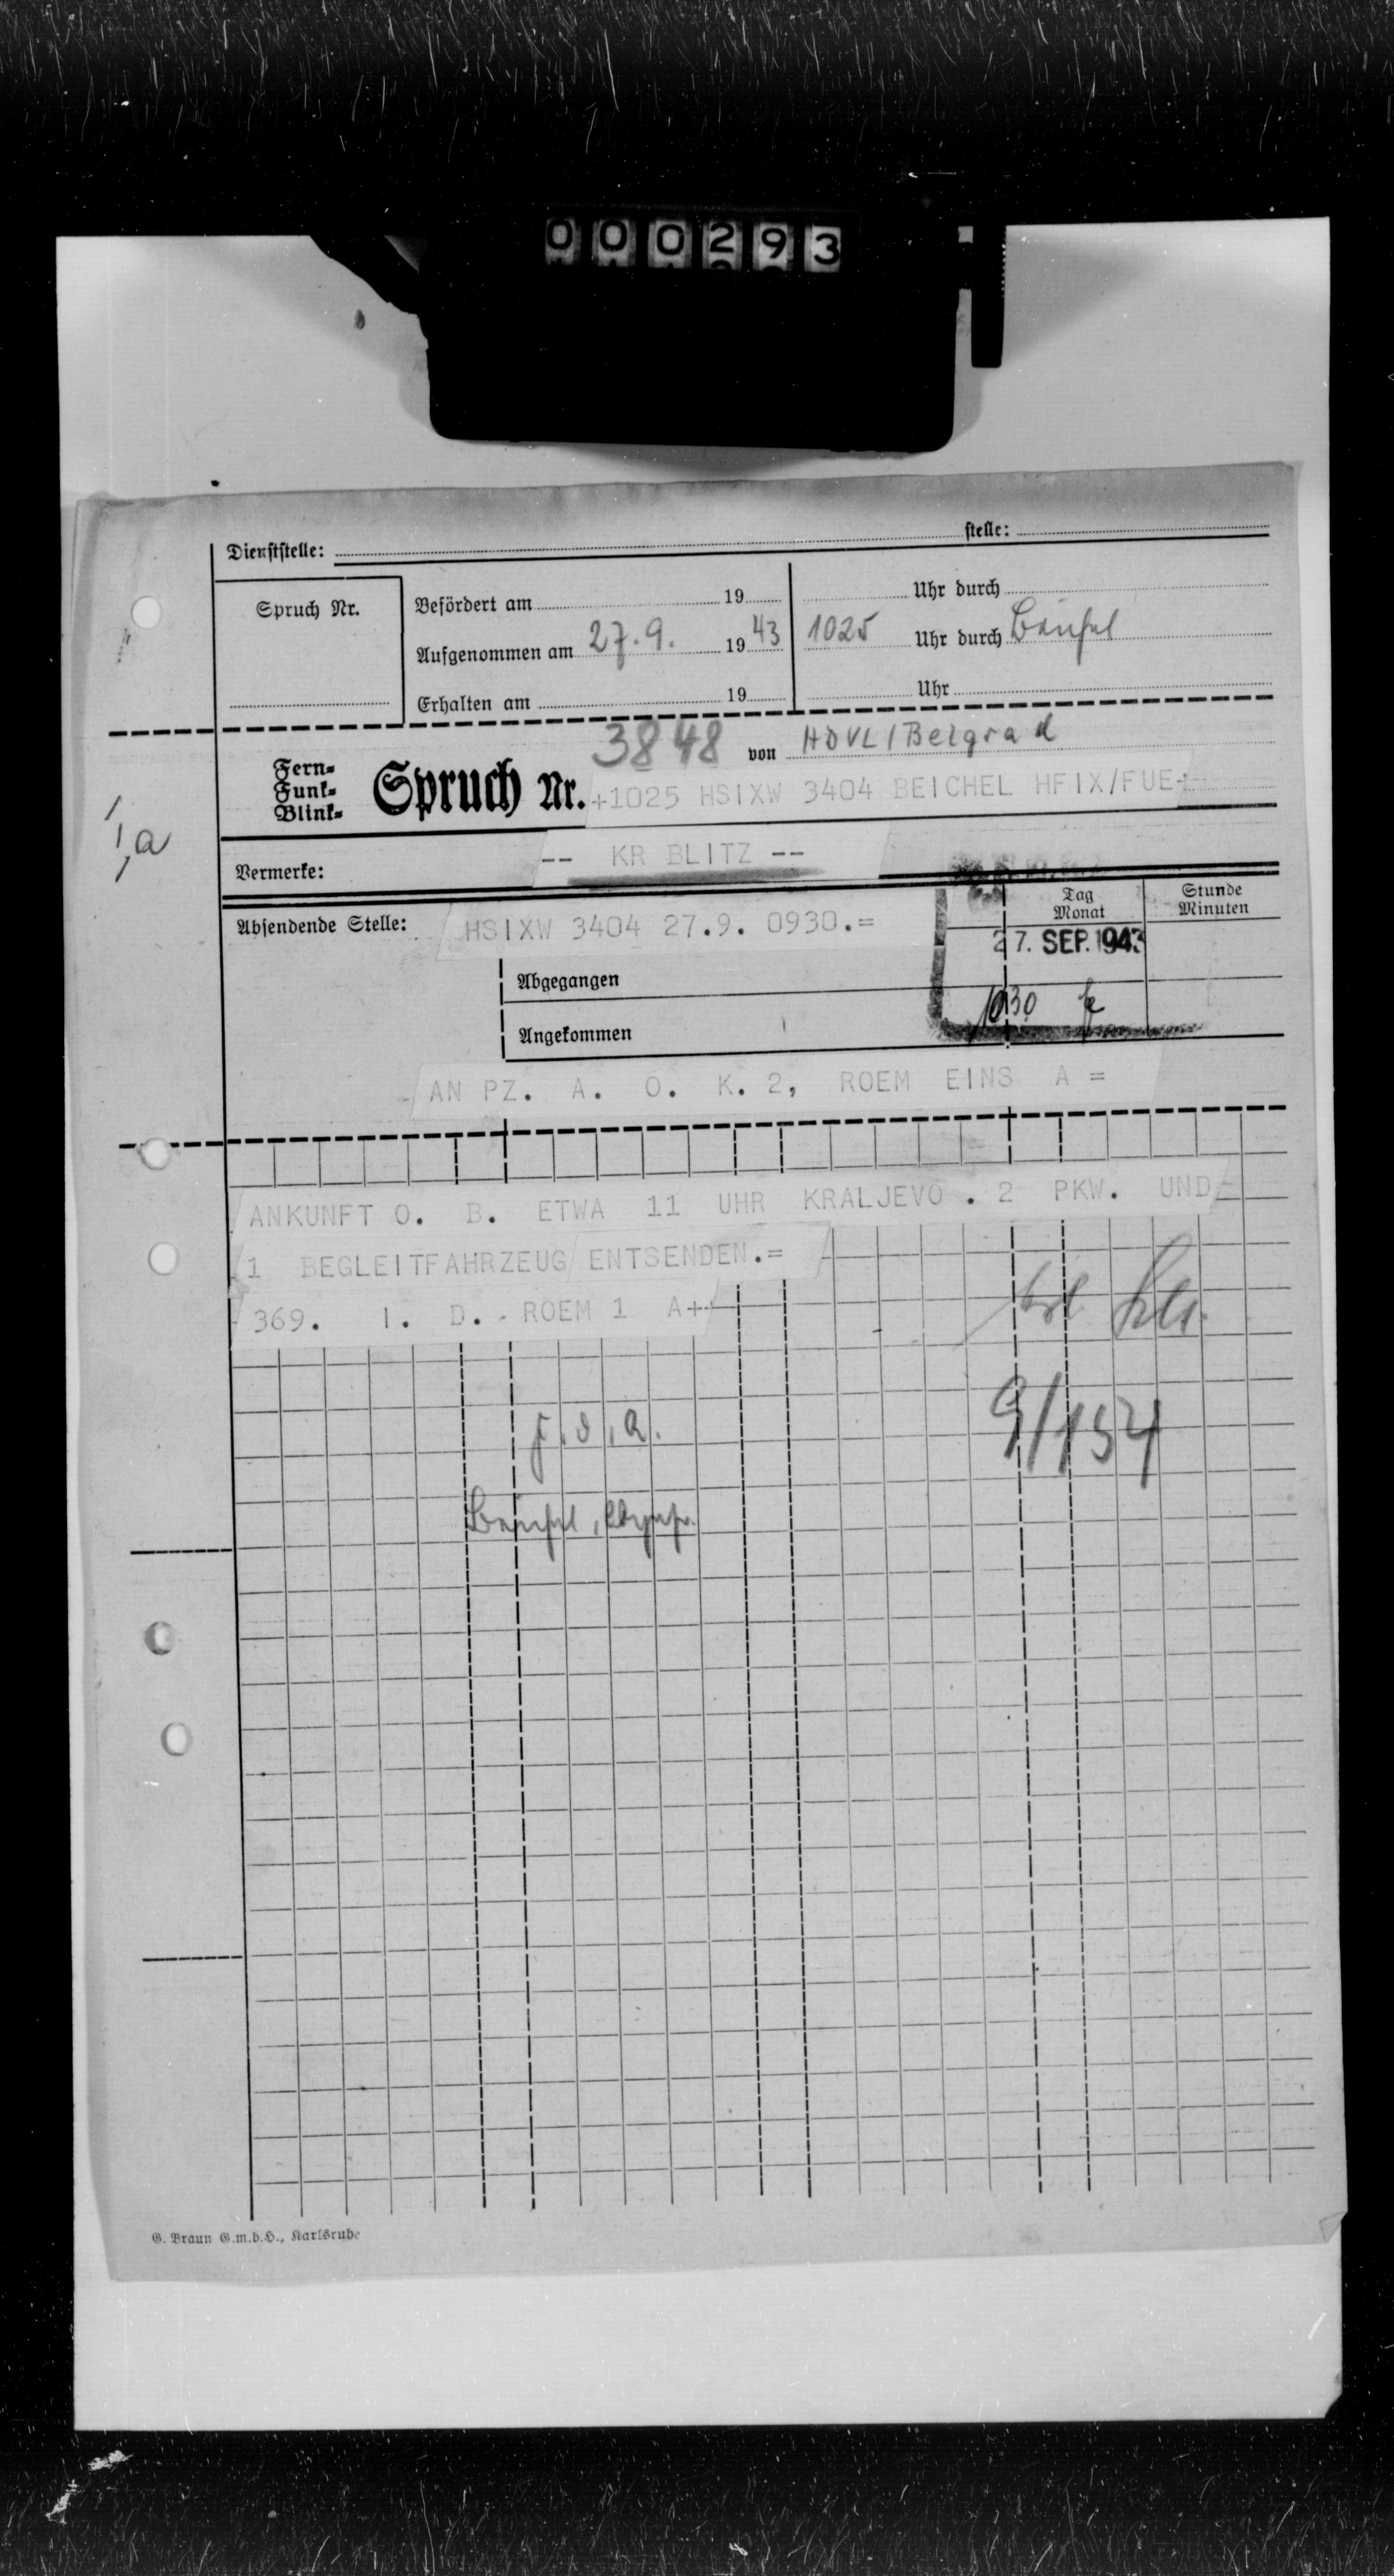 000293
Dienststelle: stelle:
Spruch Nr.
Befördert am 19 Uhr durch
Aufgenommen am 27.9. 1943 1025 Uhr durch
Erhalten am 19 Uhr
Fern-
Funk-
Blink-
Spruch Nr. 3848 von HDVL/Belgrad
+1025 HSIXW 3404 BEICHEL HFIX/FUE+
Ia
Vermerke: -- KR BLITZ --
Absendende Stelle: HSIXW 3404 27.9. 0930.=
Tag
Monat
Stunde
Minuten
27. SEP. 1943
Abgegangen
1030
Angekommen
AN PZ. A. O. K. 2, ROEM EINS A =
ANKUNFT O. B. ETWA 11 UHR KRALJEVO . 2 PKW. UND
1 BEGLEITFAHRZEUG ENTSENDEN.=
369. I. D. ROEM 1 A++
9/154
F.d.R.
G. Braun G.m.b.H., Karlsruhe